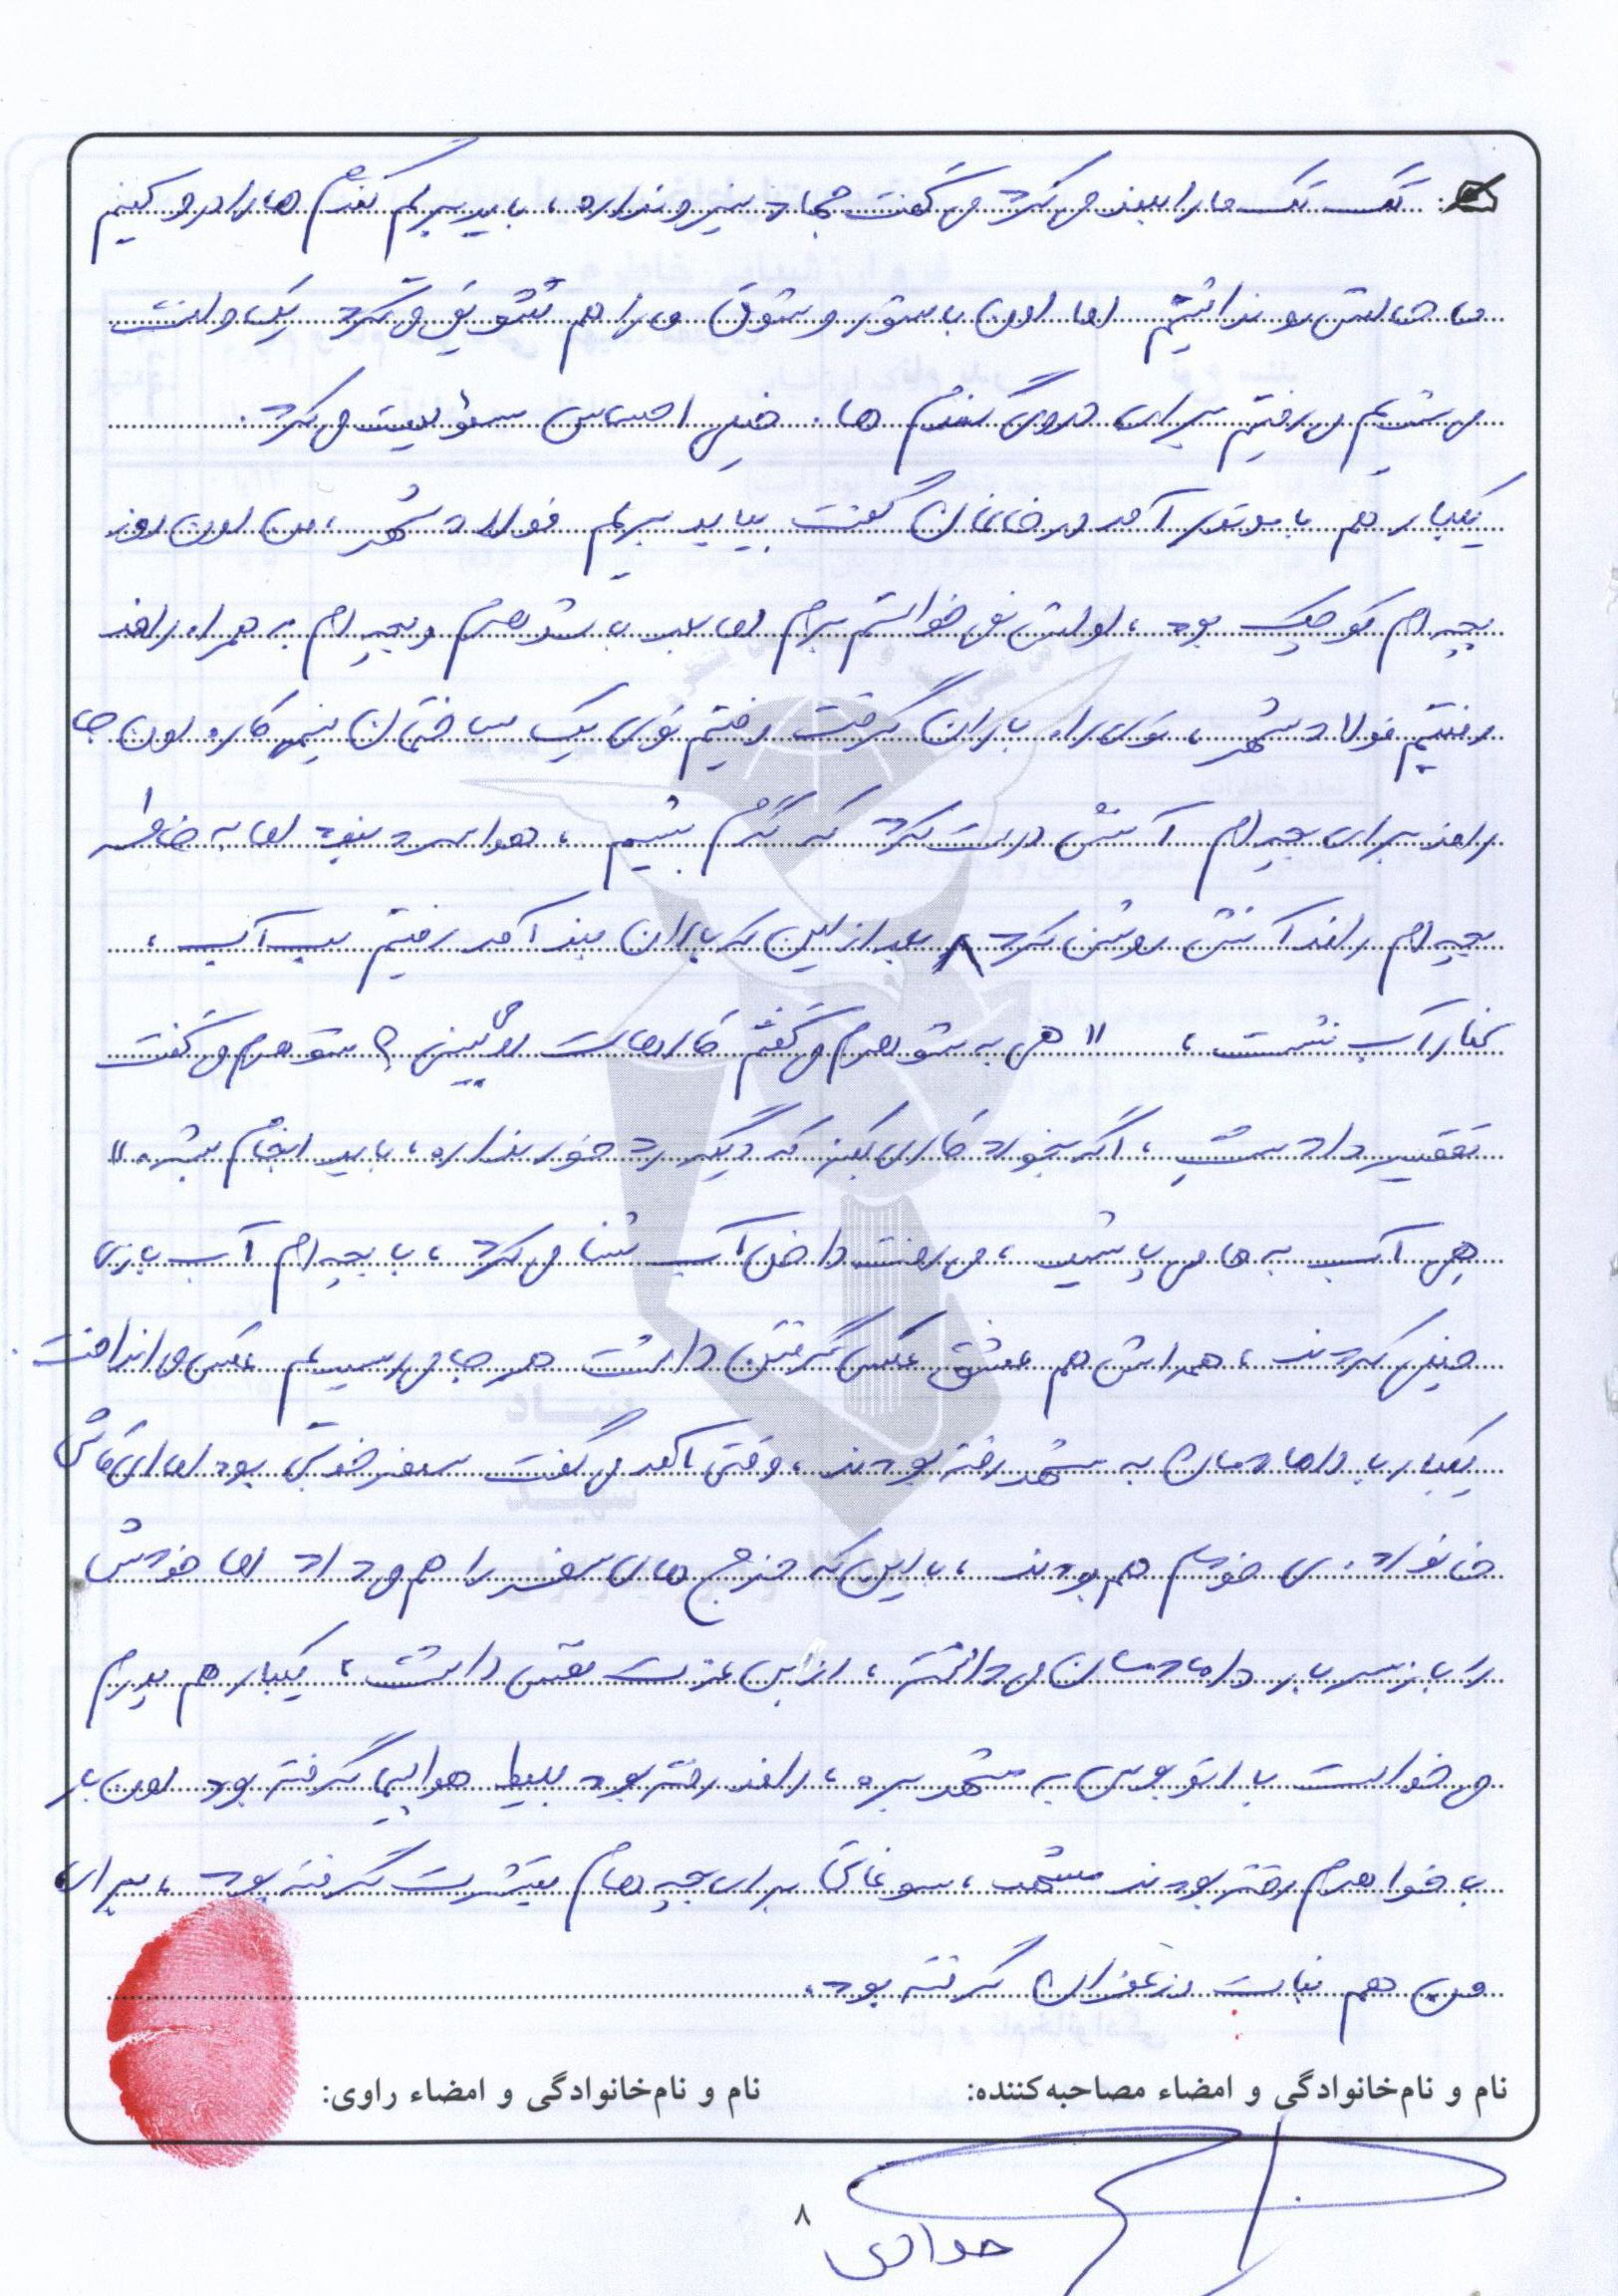 تک تک ما را بلند می‌کرد می‌گفت جهاد نیرو نداره، باید بریم گندم ها را درو کنیم
ما حالش رو نداشتیم اما اون با شور و شوق ما را هم تشویق می‌کرد یک وانت
می‌شدیم می‌رفتیم برای دروی گندم ها. خیلی احساس مسئولیت می‌کرد.
یکبار هم با موتور آمد در خانمان گفت بیایید بریم فولادشهر، من اون روز
بچه ام کوچک بود، اولش نمی‌خواستم برم اما بعد با شوهرم و بچه ام به همراه راهد
رفتیم فولادشهر، توی راه باران گرفت رفتیم توی یک ساختمان نیمه کاره اون جا
برای بچه ام آتش درست کرد که گرم بشیم، هوا سرد نبود اما به خاطر
بچه ام آتش روشن کرد، بعد از این که باران بند آمد رفتیم لب آب،
کنار آب نشست، " هی به شوهرم می‌گفتم کارهاش رو ببین؟ شوهرم می‌گفت
تغییر داد، اگه بخواد کاری بکنه که دیگه رد خور نداره، باید انجام بشه."
هی آب به ما می‌پاشید، می‌رفت داخل آب شنا می‌کرد، با بچه ام آب بازی
می‌کردند، همراش هم عشق عکس گرفتن داشت هر جا می‌رسیدیم عکس می‌انداخت.
یکبار با دامادمان به مشهد رفته بودند، وقتی آمد می‌گفت سفر خوبی بود اما ای کاش
خانواده ی خودم هم بودند، با این که خرج های سفر را هم می‌داد اما خودش
را باز سربار دامادمان می‌دانست، از بس عزت نفس داشت، یکبار هم پدرم
می‌خواست با اتوبوس به مشهد بره، رفته بود بلیط هواپیما گرفته بود اون بار
با خواهرم رفته بودند مشهد، سوغاتی برای بچه هام تیشرت گرفته بود، برای
من هم نبات زعفران گرفته بود.
نام و نام‌خانوادگی و امضاء مصاحبه‌کننده: نام و نام‌خانوادگی و امضاء راوی:
۸